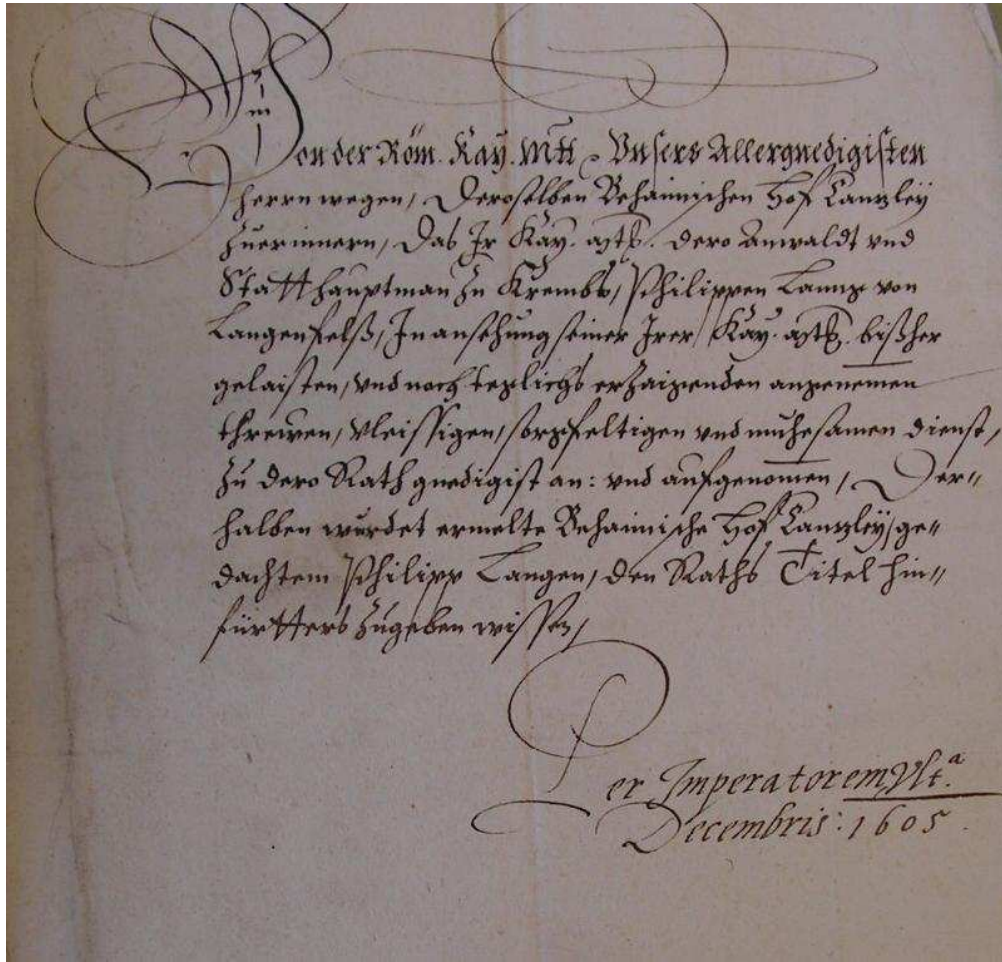 Von der Röm. Kay. Mtt Vnsers Allergnedigisten
herrn wegen, Deroselben Behaimischen Hof Canzley
Zuerinnern, Das Ir Kay. Mtt. dero Anwaldt vnd
Statthauptman Zu Krembs, Philippen Lanng von
Langenfelß, In ansehung seiner Irer Kay. Mtt. bißher
gelaisten, vnd noch teglichs erzaigenden angenemen
threwen, vleissigen, sorgfeltigen vnd muhesamen dienst,
Zu dero Rath gnedigist an: vnd aufgenomen, Der„
halben würdet ermelte Behaimische Hof Canzley, ge„
dachtem Philipp Langen, den Raths Titel hin„
fürtters Zugeben wissen,
Per Imperatorem Vlt.a
Decembris: 1605.